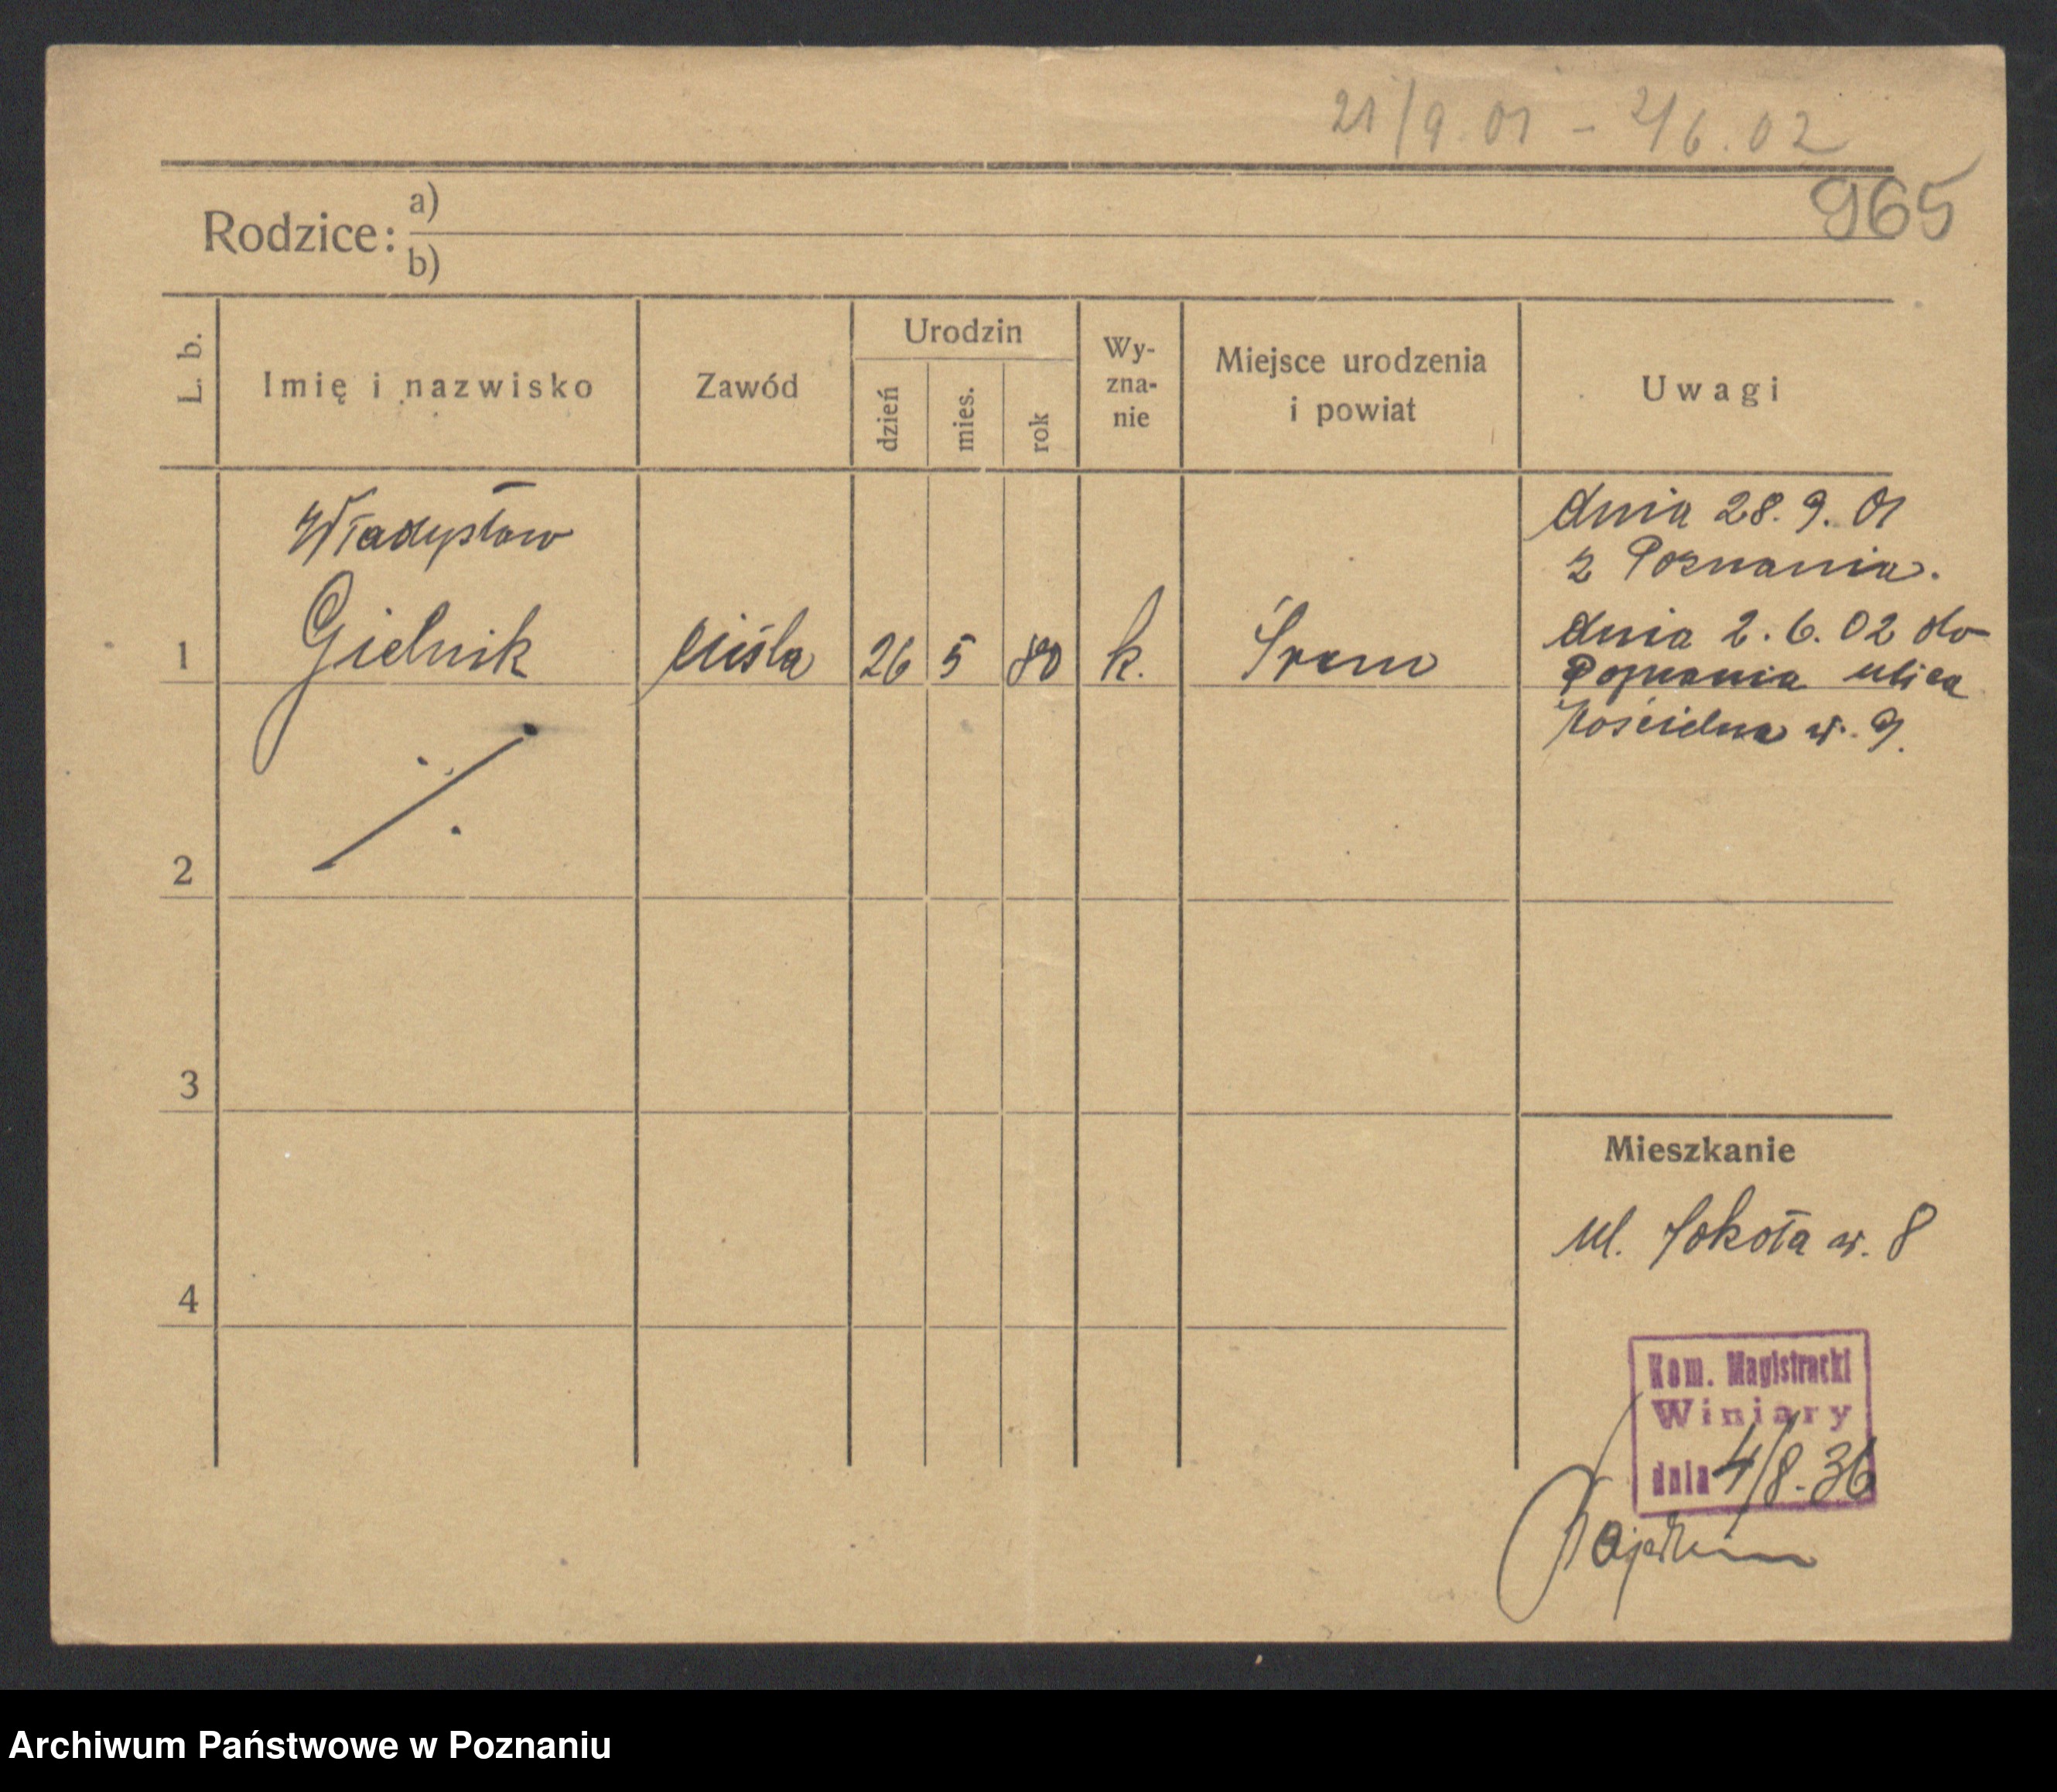 21/9.01 - 2/6.02
965
Rodzice: a)
b)
L. b.
Imię i nazwisko
Zawód
Urodzin
dzień
mies.
rok
Wy-
zna-
nie
Miejsce urodzenia
i powiat
Uwagi
Władysław
1 Gielnik cieśla 26 5 80 k. Śrem
dnia 28. 9. 01
z Poznania.
dnia 2. 6. 02 do
Poznania ulica
Kościelna nr. 9.
2
3
4
Mieszkanie
ul. Sokoła nr. 8
Kom. Magistracki
Winiary
dnia 4/8.36
Archiwum Państwowe w Poznaniu